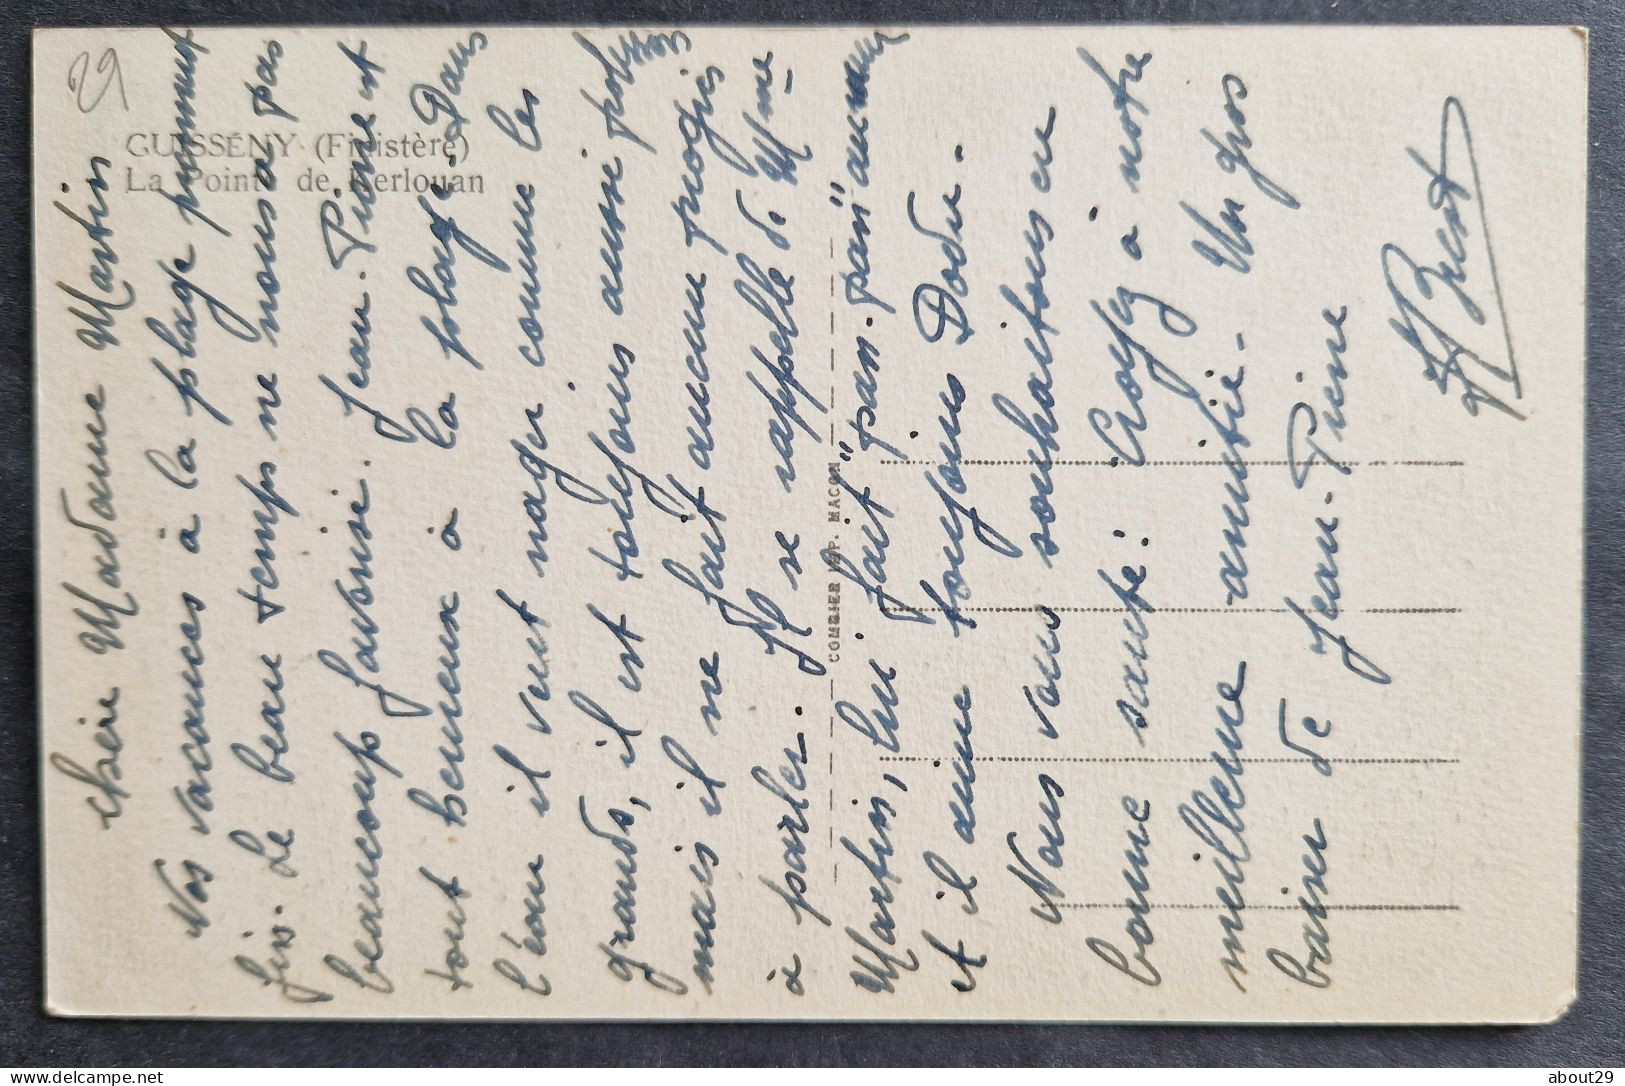 29
GUISSÉNY (Finistère)
La Pointe de Kerlouan
COMBIER IMP. MACON
Chère Madame Martin
Nos vacances à la plage prennent
fin. Le beau temps ne nous a pas
beaucoup favorisé. Jean-Pierre est
tout heureux à la plage. Dans
l'eau il veut nager comme les
grands, il est toujours aussi
mais il ne fait aucun progrès
à parler. Il se rappelle de Mme
Martin, lui fait "pan-pan"
et il aime toujours Dodu.
Nous vous souhaitons en
bonne santé. Croyez à notre
meilleure amitié. Un gros
baiser de Jean-Pierre